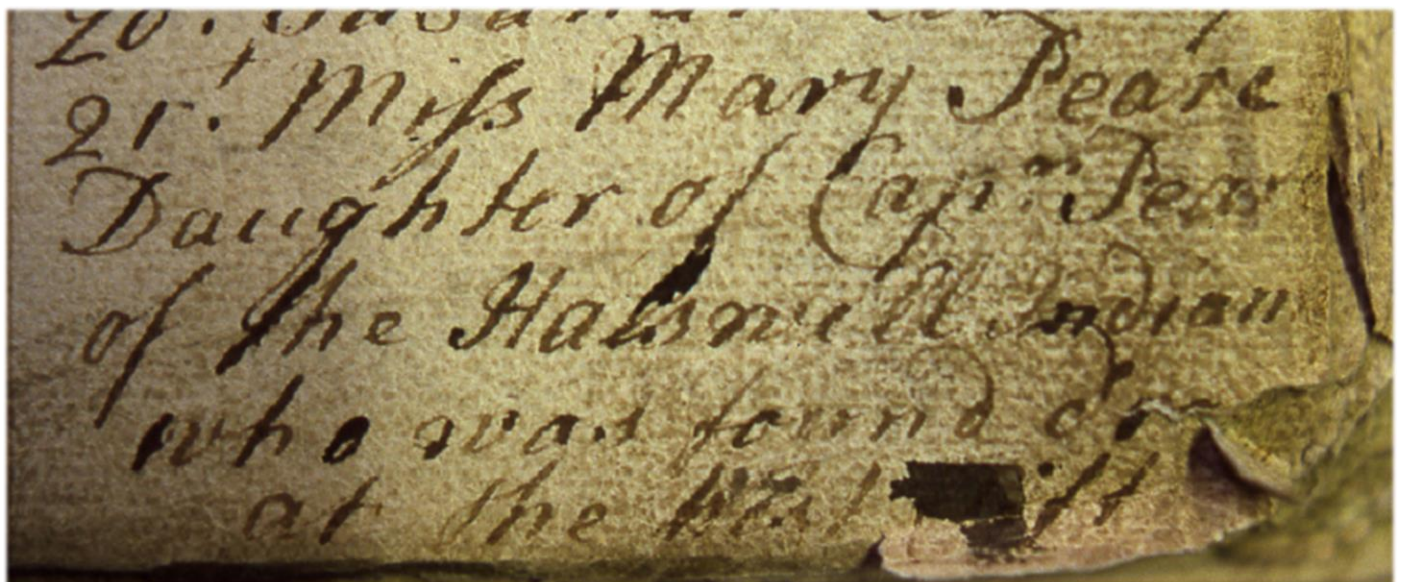 21st Miss Mary Peare
Daughter of Capn Pear
of the Halswell Indian
who was found
at the West